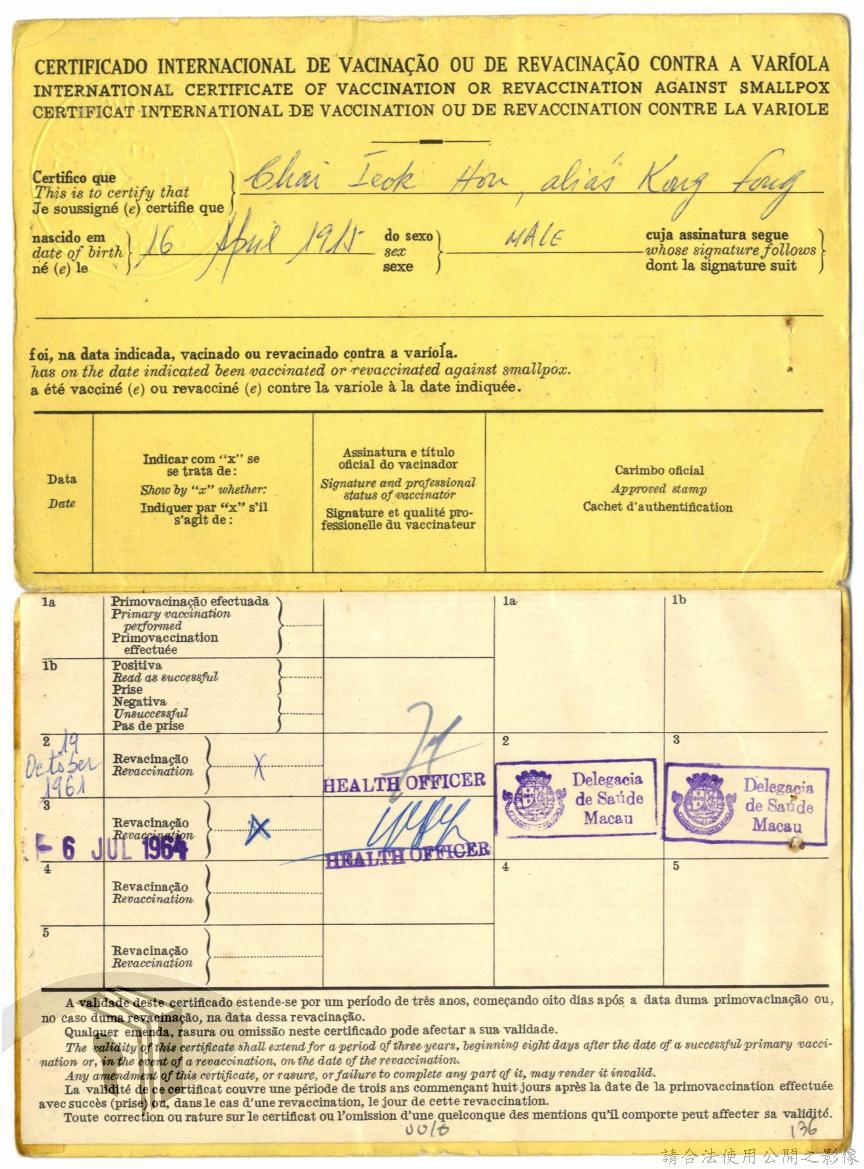 CERTIFICADO INTERNACIONAL DE VACINAÇÃO OU DE REVACINAÇÃO CONTRA A VARÍOLA
INTERNATIONAL CERTIFICATE OF VACCINATION OR REVACCINATION AGAINST SMALLPOX
CERTIFICAT INTERNATIONAL DE VACCINATION OU DE REVACCINATION CONTRE LA VARIOLE
Certifico que
This is to certify that
Je soussigné (e) certifie que
Chai Ieok Hon, aliás Kong Fong
nascido em
date of birth
né (e) le
16 April 1915
do sexo
sex
sexe
MALE
cuja assinatura segue
whose signature follows
dont la signature suit
foi, na data indicada, vacinado ou revacinado contra a varíola.
has on the date indicated been vaccinated or revaccinated against smallpox.
a été vacciné (e) ou revacciné (e) contre la variole à la date indiquée.
Data
Date
Indicar com "x" se
se trata de:
Show by "x" whether:
Indiquer par "x" s'il
s'agit de:
Assinatura e título
oficial do vacinador
Signature and professional
status of vaccinator
Signature et qualité pro-
fessionelle du vaccinateur
Carimbo oficial
Approved stamp
Cachet d'authentification
1a
Primovacinação efectuada
Primary vaccination
performed
Primovaccination
effectuée
1a
1b
1b
Positiva
Read as successful
Prise
Negativa
Unsuccessful
Pas de prise
2
19
October
1961
Revacinação
Revaccination
x
HEALTH OFFICER
2
Delegacia
de Saúde
Macau
3
Delegacia
de Saúde
Macau
3
- 6 JUL 1964
Revacinação
Revaccination
x
HEALTH OFFICER
4
Revacinação
Revaccination
4
5
5
Revacinação
Revaccination
A validade deste certificado estende-se por um período de três anos, começando oito dias após a data duma primovacinação ou,
no caso duma revacinação, na data dessa revacinação.
Qualquer emenda, rasura ou omissão neste certificado pode afectar a sua validade.
The validity of this certificate shall extend for a period of three years, beginning eight days after the date of a successful primary vacci-
nation or, in the event of a revaccination, on the date of the revaccination.
Any amendment of this certificate, or rasure, or failure to complete any part of it, may render it invalid.
La validité de ce certificat couvre une période de trois ans commençant huit jours après la date de la primovaccination effectuée
avec succès (prise) ou, dans le cas d'une revaccination, le jour de cette revaccination.
Toute correction ou rature sur le certificat ou l'omission d'une quelconque des mentions qu'il comporte peut affecter sa validité.
136
請合法使用公開之影像